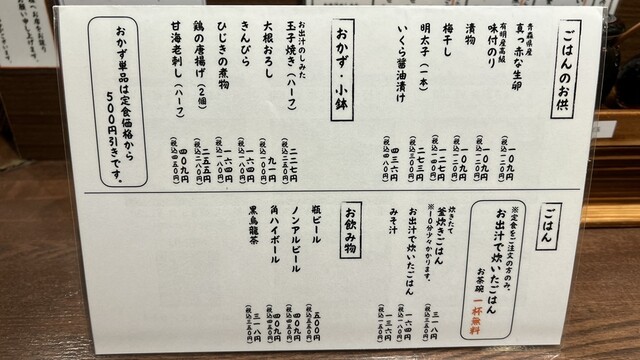 ごはんのお供
青森県産
真っ赤な生卵
一〇九円
(税込一二〇円)
有明産高級
味付のり
一〇九円
(税込一二〇円)
漬物
一〇九円
(税込一二〇円)
梅干し
一二七円
(税込一四〇円)
明太子(一本)
二七三円
(税込三〇〇円)
いくら醤油漬け
四三六円
(税込四八〇円)
おかず・小鉢
お出汁のしみた
玉子焼き(ハーフ)
二二七円
(税込二五〇円)
大根おろし
九一円
(税込一〇〇円)
きんぴら
一六四円
(税込一八〇円)
ひじきの煮物
一六四円
(税込一八〇円)
鶏の唐揚げ(2個)
二五五円
(税込二八〇円)
甘海老刺し(ハーフ)
四〇九円
(税込四五〇円)
おかず単品は定食価格から
500円引きです。
ごはん
※定食をご注文の方のみ、
お出汁で炊いたごはん
お茶碗 一杯無料
炊きたて
釜炊きごはん
※10分少々かかります。
三一八円
(税込三五〇円)
お出汁で炊いたごはん
一六四円
(税込一八〇円)
みそ汁
一三六円
(税込一五〇円)
お飲み物
瓶ビール
五〇〇円
(税込五五〇円)
ノンアルビール
四〇九円
(税込四五〇円)
角ハイボール
四〇九円
(税込四五〇円)
黒烏龍茶
三一八円
(税込三五〇円)